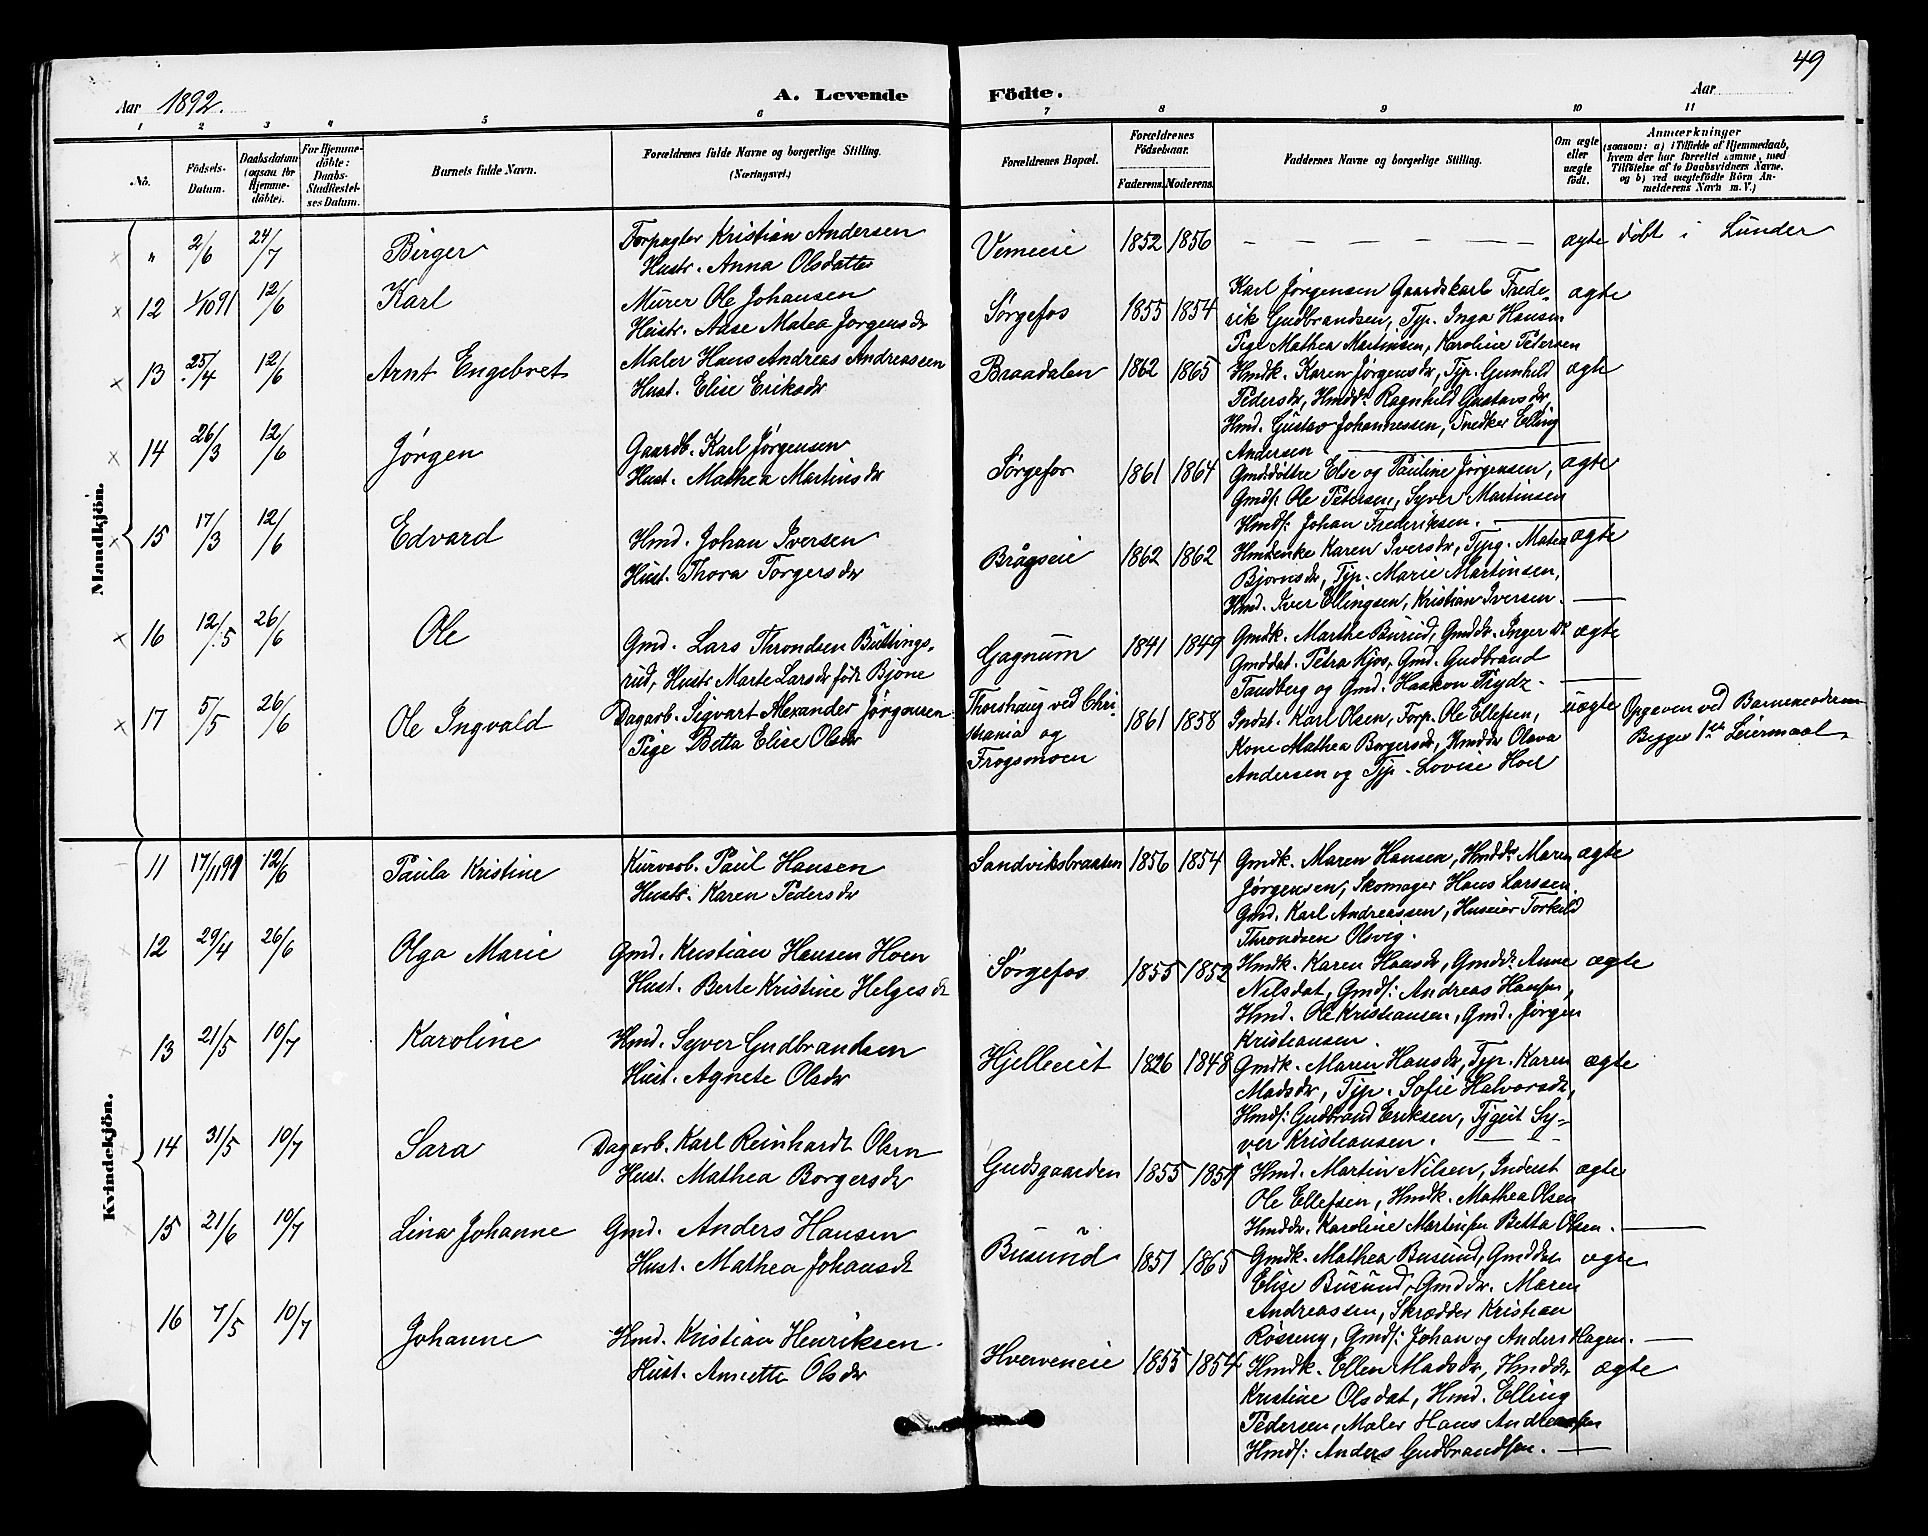 49
Aar 1892. A. Levende Födte. Aar
1 2 3 4 5 6 7 8 9 10 11
No. Födsels-Datum. Daabsdatum (ogsaa for Hjemme-döbte). For Hjemme-döbte: Daabs-Stadfæstel-ses Datum. Barnets fulde Navn. Forældrenes fulde Navne og borgerlige Stilling. (Næringsvei.) Forældrenes Bopæl. Forældrenes Födselsaar. Faderens. Moderens. Faddernes Navne og borgerlige Stilling. Om ægte eller uægte födt. Anmærkninger (saasom: a) i Tilfælde af Hjemmedaab, hvem der har forrettet samme, med Tilföielse af to Daabsvidners Navne. og b) ved uægtefödte Börn An-melderens Navn m. V.)
Mandkjön.
" 2/6 24/7 Birger Forpagter Kristian Andersen
Hustr. Anna Olsdatter Vemeeie 1852 1856 — — — — — — ægte døbt i Lunder
12 1/10 91 12/6 Karl Murer Ole Johansen
Hustr. Aase Matea Jørgensdr Sørgefos 1855 1854 Karl Jørgensen Gaardskarl Frede-
rik Gudbrandsen, Typ. Inga Hansen
Pige Mathea Martinsen, Karoline Pedersen ægte
13 25/4 12/6 Arnt Engebret Maler Hans Andreas Andreassen
Hust. Elise Eriksdr Braadalen 1862 1865 Hmdk. Karen Jørgensdr, Typ. Gunhild
Pedersdr, Hmdd: Ragnhild Gustavsdr,
Hmd. Gustav Johannessen, Snedker Elling
Andersen ægte
14 26/3 12/6 Jørgen Gaardb. Karl Jørgensen
Hust. Mathea Martinsdr Sørgefos 1861 1864 Gmddøttre Else og Pauline Jørgensen,
Gmds: Ole Petersen, Syver Martinsen
Hmds: Johan Frederiksen. ægte
15 17/3 12/6 Edvard Hmd. Johan Iversen
Hust. Thora Torgersdr Brågseie 1862 1862 Hmdenke Karen Iversdr, Typg. Matea
Bjørnsdr, Tjp. Marie Martinsen,
Hmd. Iver Ellingsen, Kristian Iversen. ægte
16 12/5 26/6 Ole Gmd. Lars Throndsen Büttings-
rud, Hustr Marte Larsdr født Bjone Gagnum 1841 1849 Gmdk. Marthe Burud, Gmddr. Inger Dº
Gmddat. Petra Kjos, Gmd. Gudbrand
Tandberg og Gmd. Haakon Trydz. ægte
17 5/5 26/6 Ole Ingvald Dagarb. Sigvart Alexander Jørgensen
Pige Betta Elise Olsdr Thorshaug ved Chri-
stiania og
Frogsmoen 1861 1858 Indst. Karl Olsen, Forp. Ole Ellefsen,
Kone Mathea Borgersdr, Hmddr Olava
Andersen og Tjp. Lovise Hoel uægte Opgaven ved Barnemoderen
Begges 1ste Leiermaal
Kvindekjön.
11 17/11 91 12/6 Paula Kristine Kurvarb. Paul Hansen
Hustr. Karen Pedersdr Sandviksbraaten 1856 1854 Gmdk. Maren Hansen, Hmddr Maren
Jørgensen, Skomager Hans Larssen
Gmd. Karl Andreassen, Huseier Torkild
Throndsen Olsvig. ægte
12 29/4 26/6 Olga Marie Gmd. Kristian Hansen Hoen
Hust. Berte Kristine Helgesdt Sørgefos 1855 1852 Hmdk. Karen Hansdr, Gmdd: Anne
Nilsdat, Gmds: Andreas Hansen,
Hmd. Ole Kristiansen, Gmd. Jørgen
Kristiansen. ægte
13 21/5 10/7 Karoline Hmd. Syver Gudbrandsen
Hust. Agnete Olsdr Hjelleeiet 1826 1848 Gmdk. Maren Hansdr, Typ. Karen
Madsdr, Tjp. Sofie Halvorsdt,
Hmds: Gudbrand Eriksen, Tjgut Sy-
ver Kristiansen. ægte
14 31/5 10/7 Sara Dagarb. Karl Reinhardt Olsen
Hust. Mathea Borgersdr Gudsgaarden 1855 1857 Hmd. Martin Nilsen, Inderst
Ole Ellefsen, Hmdk. Mathea Olsen
Hmddr. Karoline Martinsen Betta Olsen. ægte
15 21/6 10/7 Lina Johanne Gmd. Anders Hansen
Hust. Mathea Johansdt Busund 1851 1865 Gmdk. Mathea Busund, Gmddat
Elise Busund, Gmddr. Maren
Andreassen, Skrædder Kristian
Røsseng, Gmds: Johan og Anders Hagen. ægte
16 7/5 10/7 Johanne Hmd. Kristian Henriksen
Hust. Annette Olsdr Hverveneie 1855 1854 Hmdk. Ellen Madsdr, Hmddr
Kristine Olsdat, Hmd. Elling
Pedersen, Maler Hans Andreassen
Hmds: Anders Gudbrandsen. ægte